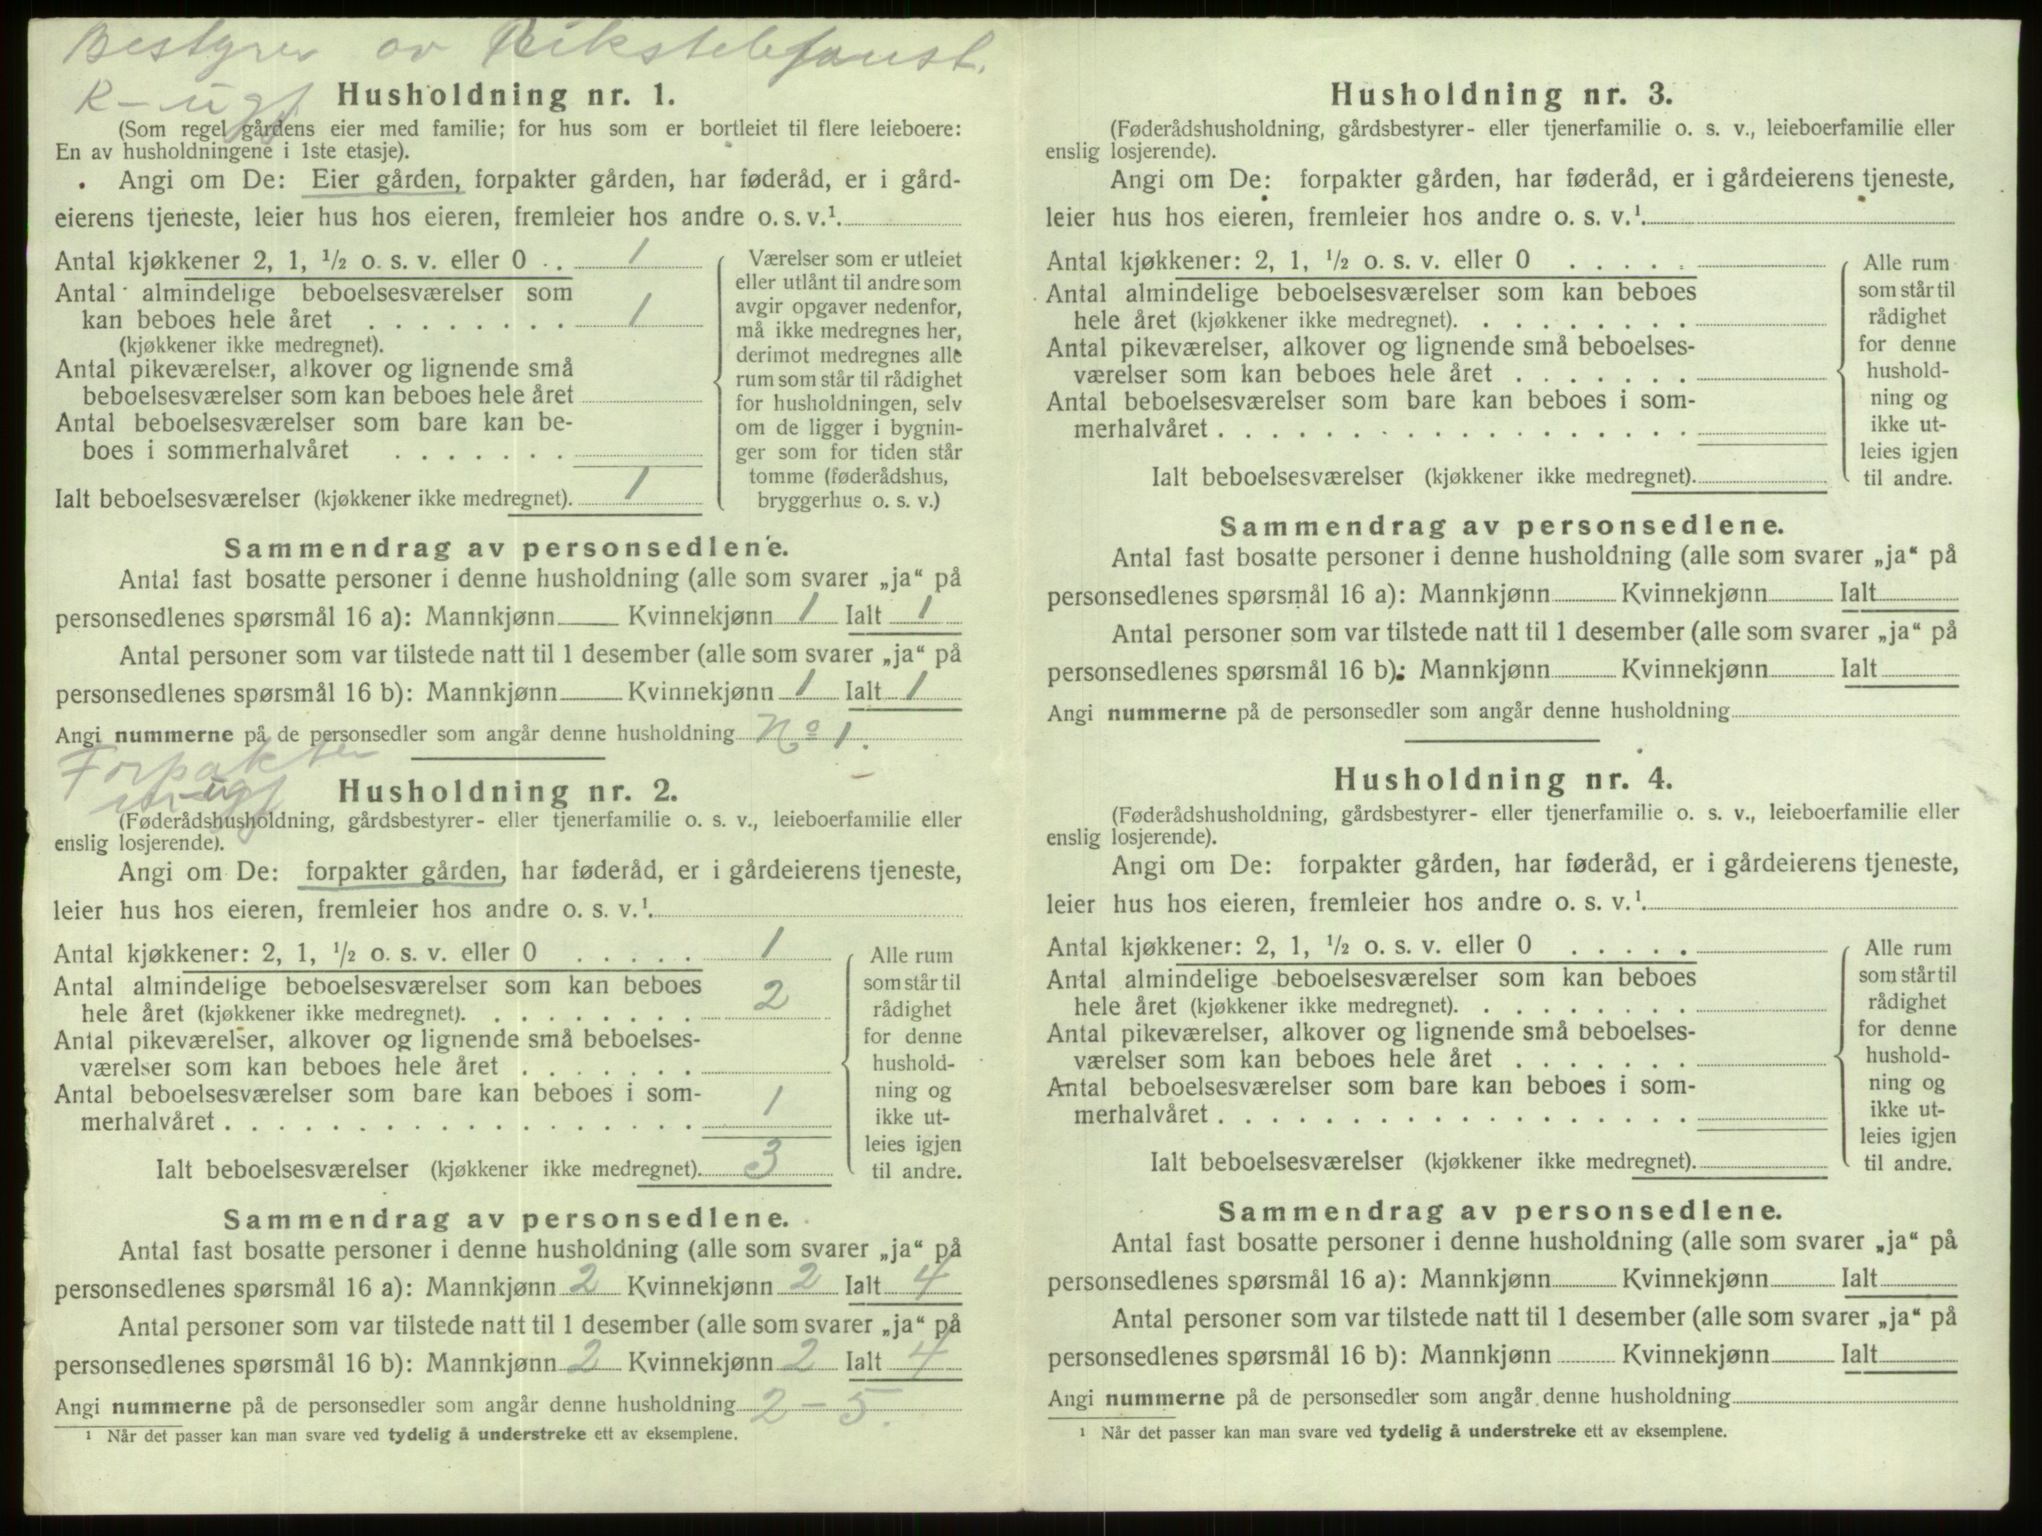 Bestyrer av Rikstelefonst.
R - ugf
Husholdning nr. 1.
(Som regel gårdens eier med familie; for hus som er bortleiet til flere leieboere:
En av husholdningene i 1ste etasje).
Angi om De: Eier gården, forpakter gården, har føderåd, er i gård-
eierens tjeneste, leier hus hos eieren, fremleier hos andre o. s. v.¹.
Antal kjøkkener 2, 1, ½ o. s. v. eller 0 . . 1
Antal almindelige beboelsesværelser som
kan beboes hele året . . . . . . . . 1
(kjøkkener ikke medregnet).
Antal pikeværelser, alkover og lignende små
beboelsesværelser som kan beboes hele året
Antal beboelsesværelser som bare kan be-
boes i sommerhalvåret . . . . . . .
Ialt beboelsesværelser (kjøkkener ikke medregnet). 1
Værelser som er utleiet
eller utlånt til andre som
avgir opgaver nedenfor,
må ikke medregnes her,
derimot medregnes alle
rum som står til rådighet
for husholdningen, selv
om de ligger i bygnin-
ger som for tiden står
tomme (føderådshus,
bryggerhus o. s. v.)
Sammendrag av personsedlene.
Antal fast bosatte personer i denne husholdning (alle som svarer „ja“ på
personsedlenes spørsmål 16 a): Mannkjønn Kvinnekjønn 1 Ialt 1
Antal personer som var tilstede natt til 1 desember (alle som svarer „ja“ på
personsedlenes spørsmål 16 b): Mannkjønn Kvinnekjønn 1 Ialt 1
Angi nummerne på de personsedler som angår denne husholdning No 1.
Forpakter
ugf
Husholdning nr. 2.
(Føderådshusholdning, gårdsbestyrer- eller tjenerfamilie o. s. v., leieboerfamilie eller
enslig losjerende).
Angi om De: forpakter gården, har føderåd, er i gårdeierens tjeneste,
leier hus hos eieren, fremleier hos andre o. s. v.¹.
Antal kjøkkener: 2, 1, ½ o. s. v. eller 0 . . . . . 1
Antal almindelige beboelsesværelser som kan beboes
hele året (kjøkkener ikke medregnet). . . . . . . . . 2
Antal pikeværelser, alkover og lignende små beboelses-
værelser som kan beboes hele året . . . . . . .
Antal beboelsesværelser som bare kan beboes i som-
merhalvåret . . . . . . . . . . . . . . . . . . 1
Ialt beboelsesværelser (kjøkkener ikke medregnet). 3
Alle rum
som står til
rådighet
for denne
hushold-
ning og
ikke ut-
leies igjen
til andre.
Sammendrag av personsedlene.
Antal fast bosatte personer i denne husholdning (alle som svarer „ja“ på
personsedlenes spørsmål 16 a): Mannkjønn 2 Kvinnekjønn 2 Ialt 4
Antal personer som var tilstede natt til 1 desember (alle som svarer „ja“ på
personsedlenes spørsmål 16 b): Mannkjønn 2 Kvinnekjønn 2 Ialt 4
Angi nummerne på de personsedler som angår denne husholdning 2 - 5.
¹ Når det passer kan man svare ved tydelig å understreke ett av eksemplene.
Husholdning nr. 3.
(Føderådshusholdning, gårdsbestyrer- eller tjenerfamilie o. s. v., leieboerfamilie eller
enslig losjerende).
Angi om De: forpakter gården, har føderåd, er i gårdeierens tjeneste,
leier hus hos eieren, fremleier hos andre o. s. v.¹.
Antal kjøkkener: 2, 1, ½ o. s. v. eller 0 . . . . .
Antal almindelige beboelsesværelser som kan beboes
hele året (kjøkkener ikke medregnet). . . . . . . . .
Antal pikeværelser, alkover og lignende små beboelses-
værelser som kan beboes hele året . . . . . . .
Antal beboelsesværelser som bare kan beboes i som-
merhalvåret . . . . . . . . . . . . . . . . . .
Ialt beboelsesværelser (kjøkkener ikke medregnet).
Alle rum
som står til
rådighet
for denne
hushold-
ning og
ikke ut-
leies igjen
til andre.
Sammendrag av personsedlene.
Antal fast bosatte personer i denne husholdning (alle som svarer „ja“ på
personsedlenes spørsmål 16 a): Mannkjønn Kvinnekjønn Ialt
Antal personer som var tilstede natt til 1 desember (alle som svarer „ja“ på
personsedlenes spørsmål 16 b): Mannkjønn Kvinnekjønn Ialt
Angi nummerne på de personsedler som angår denne husholdning
Husholdning nr. 4.
(Føderådshusholdning, gårdsbestyrer- eller tjenerfamilie o. s. v., leieboerfamilie eller
enslig losjerende).
Angi om De: forpakter gården, har føderåd, er i gårdeierens tjeneste,
leier hus hos eieren, fremleier hos andre o. s. v.¹.
Antal kjøkkener: 2, 1, ½ o. s. v. eller 0 . . . . .
Antal almindelige beboelsesværelser som kan beboes
hele året (kjøkkener ikke medregnet). . . . . . . . .
Antal pikeværelser, alkover og lignende små beboelses-
værelser som kan beboes hele året . . . . . . .
Antal beboelsesværelser som bare kan beboes i som-
merhalvåret . . . . . . . . . . . . . . . . . .
Ialt beboelsesværelser (kjøkkener ikke medregnet).
Alle rum
som står til
rådighet
for denne
hushold-
ning og
ikke ut-
leies igjen
til andre.
Sammendrag av personsedlene.
Antal fast bosatte personer i denne husholdning (alle som svarer „ja“ på
personsedlenes spørsmål 16 a): Mannkjønn Kvinnekjønn Ialt
Antal personer som var tilstede natt til 1 desember (alle som svarer „ja“ på
personsedlenes spørsmål 16 b): Mannkjønn Kvinnekjønn Ialt
Angi nummerne på de personsedler som angår denne husholdning
¹ Når det passer kan man svare ved tydelig å understreke ett av eksemplene.